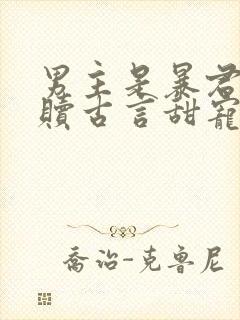 男主是暴君
赎古言甜宠
乔治-克鲁尼